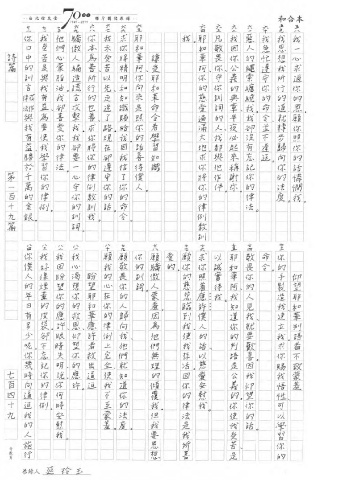 和合本
70
我一心求過你的恩願你照你的話憐憫我
我思想我所行的道就轉步歸向你的法度
我急忙遵守你的命令並不遲延
惡人的繩索纏繞我我卻沒有忘記你的律法
我因你公義的典章半夜必起來稱謝你
凡敬畏你守你訓詞的人我都與他作伴
耶和華啊你的慈愛遍滿大地求你將你的律例教訓
我
耶和華命令者
耶和華啊你向來是照你的話善待僕人
求你將精明和知識賜給我因我信了你的命令
我未受苦以先走迷了路現在卻遵守你的話
你本為善所行的也善求你將你的律例教訓我
驕傲人編造謊言攻擊我我卻要一心守你的訓詞
他們心蒙脂油我卻喜愛你的律法
我受苦是與我有益為要使我學習你的律例
你口中的訓言與我有益勝於千萬的金銀
詩篇 第一百十九篇 七百四十九
仰望耶和華不致蒙羞
你的手製造我建立我求你賜我悟性可以學習你的
命令
敬畏你的人見我就要歡喜因我仰望你的話
耶和華我知道你的判語是公義的你使我受苦是
以誠實待我
求你照著應許僕人的話以慈愛安慰我
願你的慈悲臨到我使我存活因你的律法是我所喜
愛的
願驕傲人蒙羞因為他們無理的傾覆我但我要思想
你的訓詞
願敬畏你的人歸向我他們就知道你的法度
願我的心在你的律例上完全使我不至蒙羞
盼望耶和華應許者救出逼迫
我心渴想你的救恩仰望你的應許
我因盼望你的應許眼睛失明說你何時安慰我
我好像煙薰的皮袋卻不忘記你的律例
你僕人的年日有多少呢你幾時向逼迫我的人施行